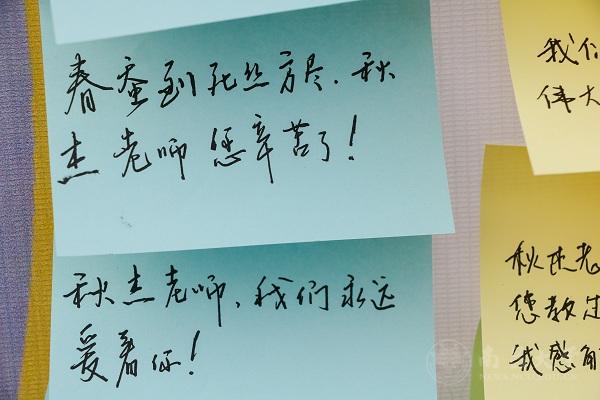 春蚕到死丝方尽，秋
杰老师您辛苦了！
秋杰老师，我们永远
爱着你！
我们
伟大
秋杰老
您教
我感